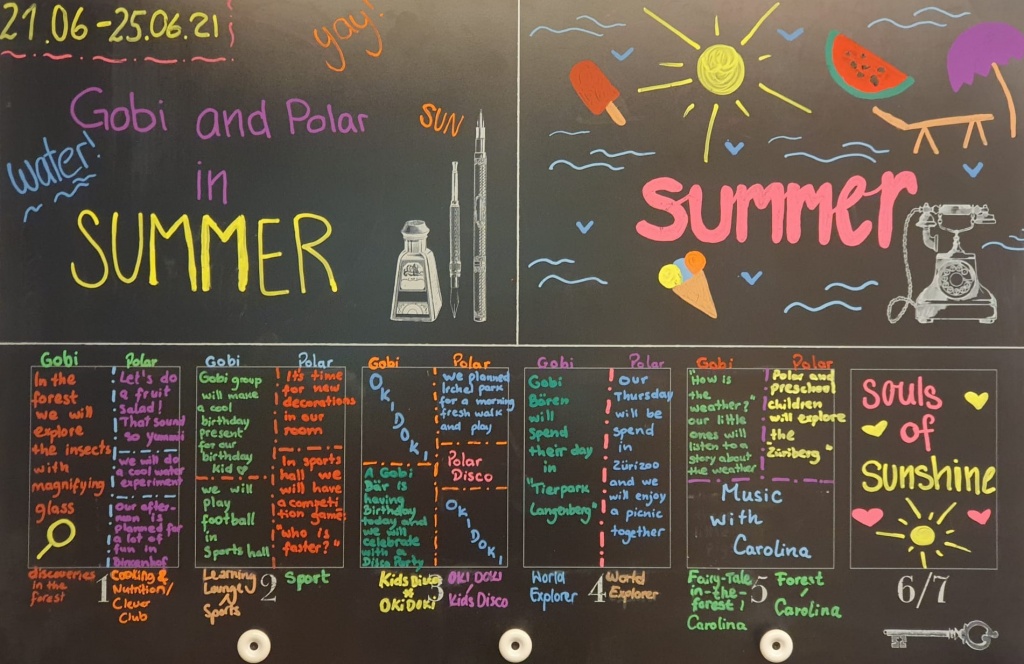 21.06-25.06.21
yay!
Gobi and Polar
in
SUMMER
water!
SUN
summer
Gobi
In the
forest
we will
explore
the insects
with
magnifying
glass
discoveries
in the
forest
Polar
Let's do
a fruit
Salad!
That sound
so yummi
we will do
a cool water
experiment
our after-
noon is
planned for
a lot of
fun in
Cooking &
Nutrition/
Clever
Club
1
Gobi
Gobi group
will make
a cool
birthday
present
for our
birthday
Kid
we will
play
football
in
Sports hall
Learning
Lounge/
Sports
Polar
It's time
for new
decorations
in our
room
In sports
hall we
will have
a competi-
tion game:
"who is
faster?"
Sport
2
Gobi
OKIDOKI
A Gobi
Bär is
having
Birthday
today and
we will
celebrate
with a
Disco Party
Kids Disco
OKiDOKi
Polar
we planned
Irchel park
for a morning
fresh walk
and play
Polar
Disco
OKIDOKI
OKI DOKI
/
Kids Disco
3
Gobi
Gobi
Bären
will
spend
their day
in
"Tierpark
Langenberg"
World
Explorer
Polar
Our
Thursday
will be
spend
in
Zürizoo
and we
will enjoy
a picnic
together
World
Explorer
4
Gobi
"How is
the
weather?"
our little
ones will
listen to a
story about
the weather
Polar
Polar and
preschool
children
will explore
the
"Züriberg"
Music
with
Carolina
Fairy-Tale
in-the-
forest /
Carolina
Forest
/
Carolina
5
souls
of
sunshine
6/7